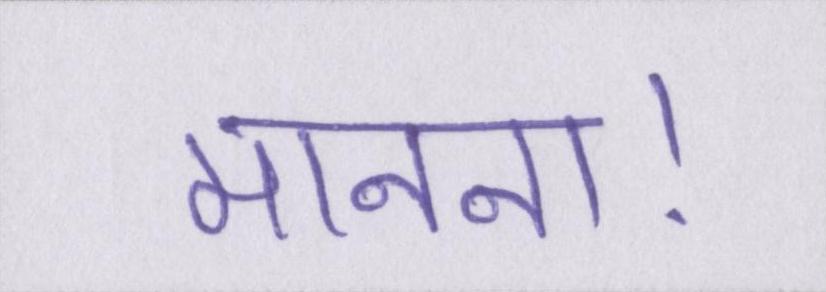 मानना!